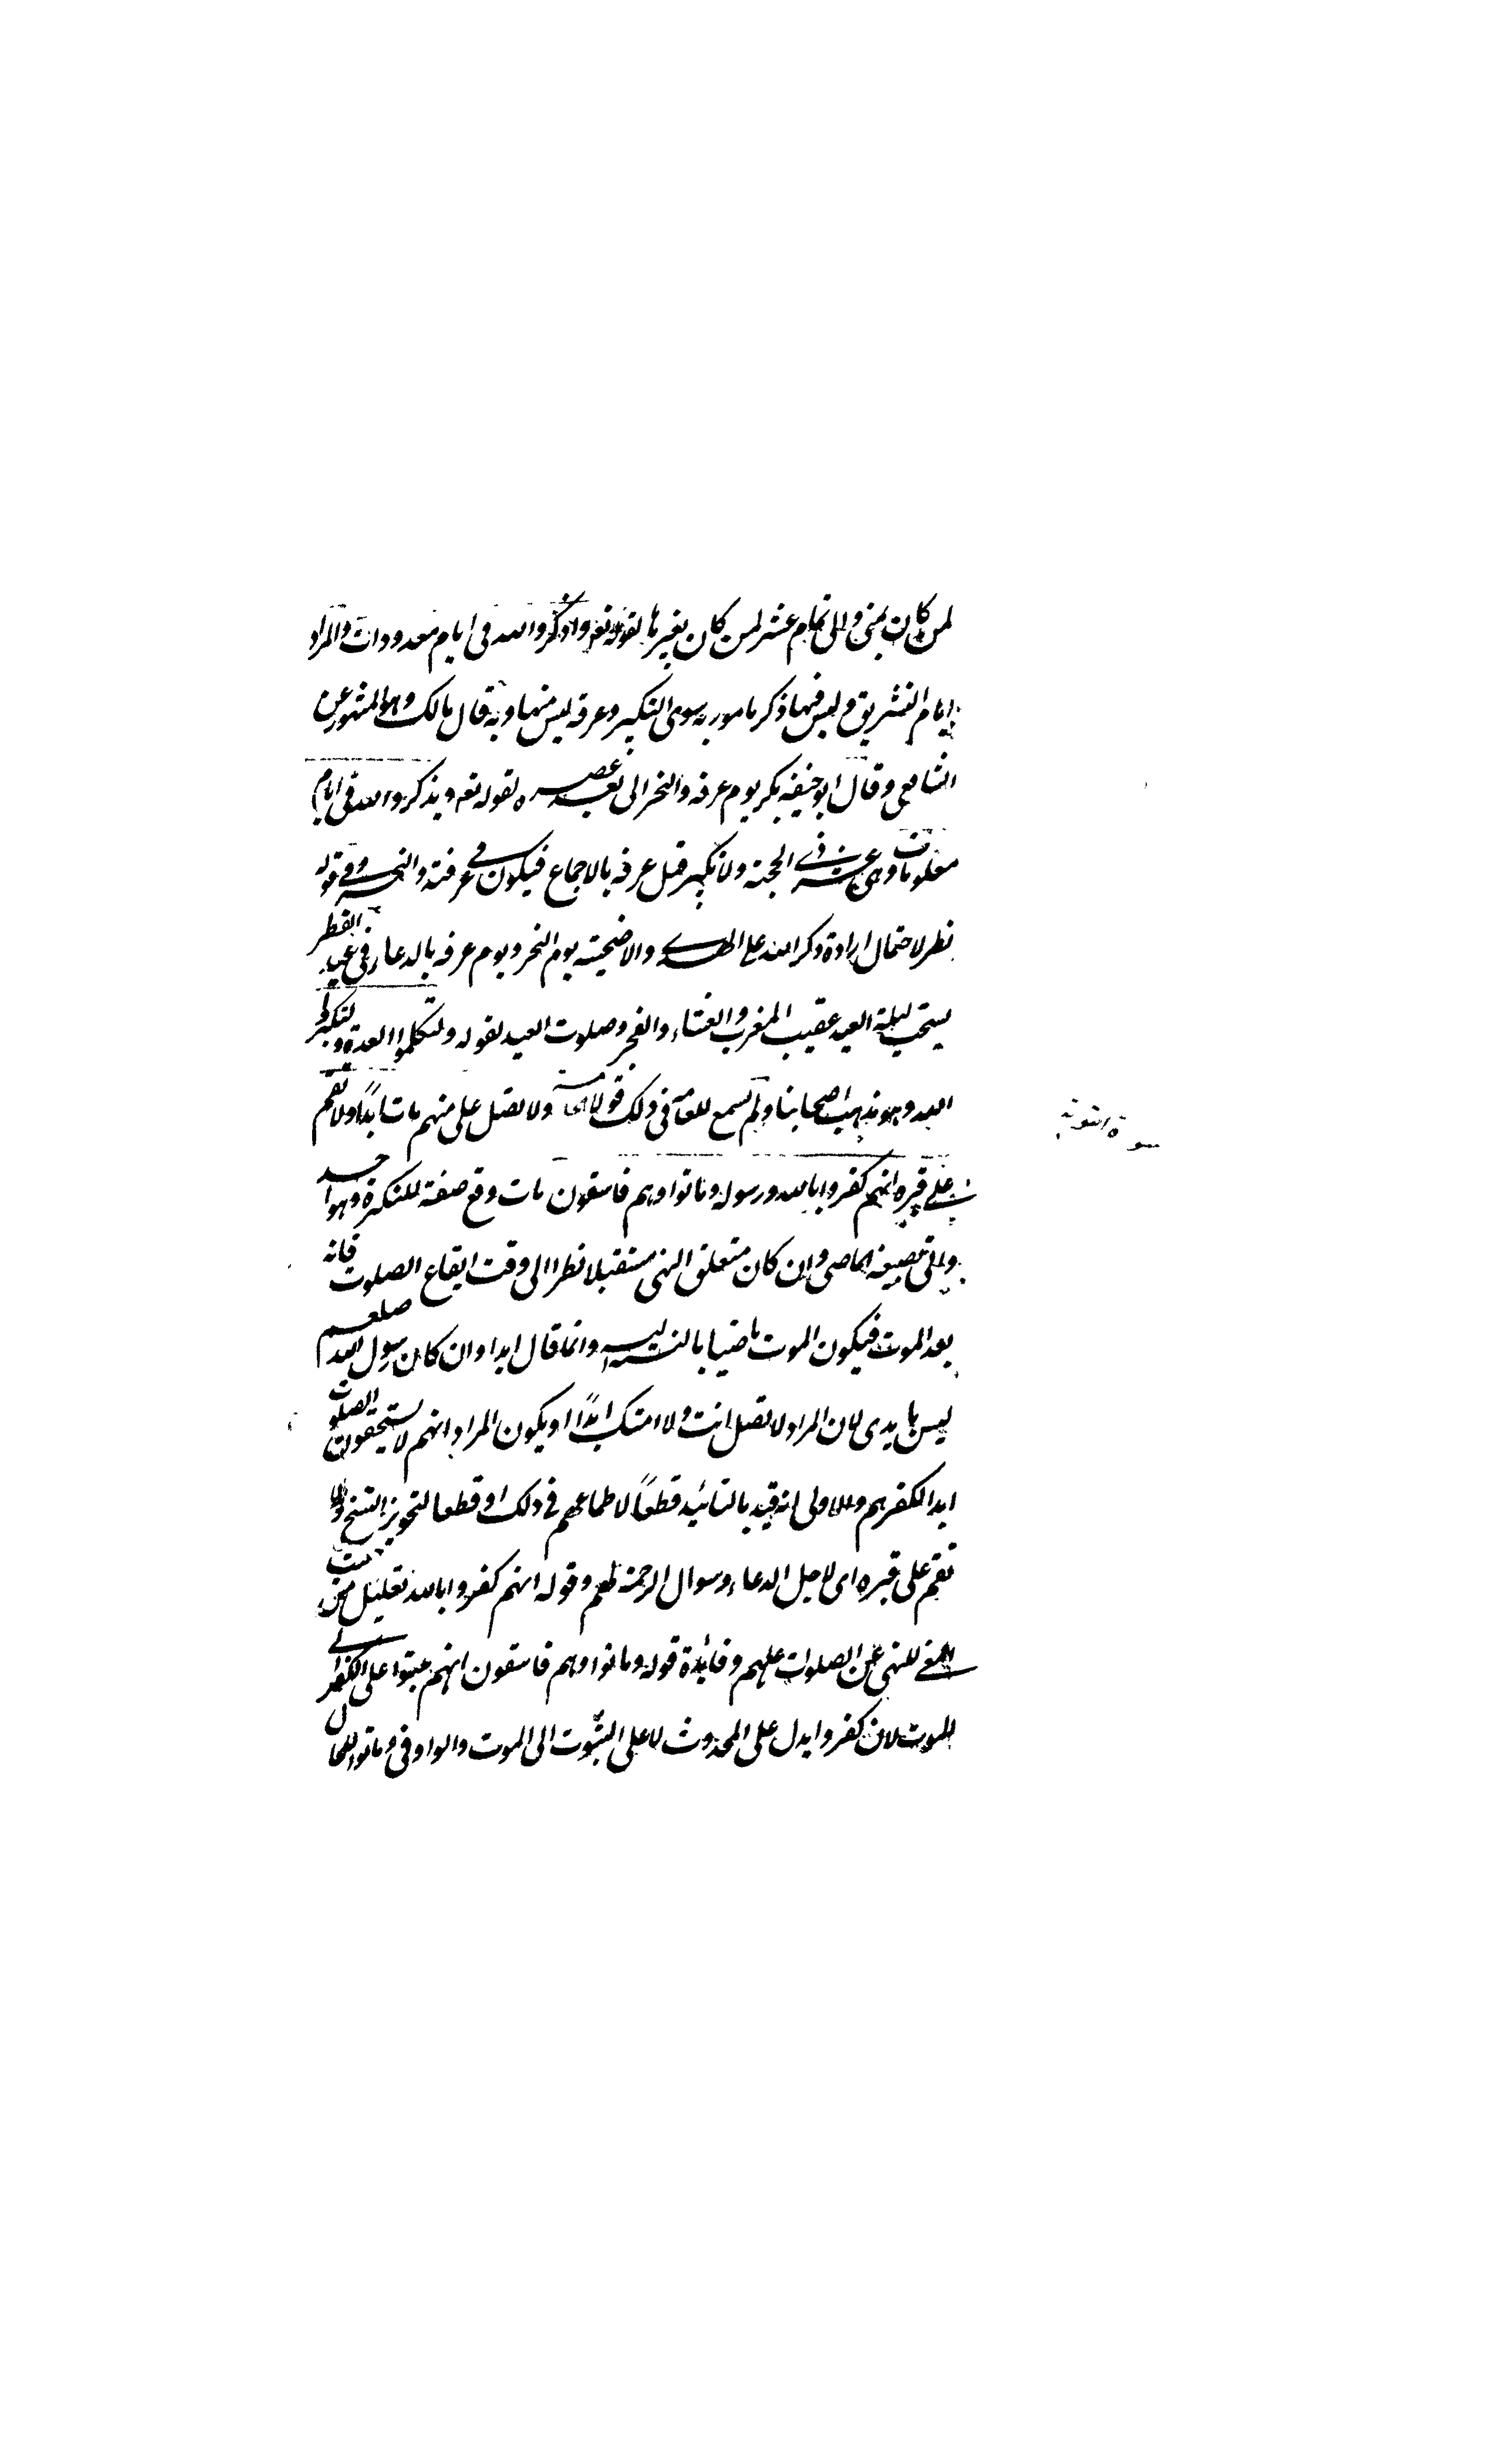 لمن كان بمنى والى تمام عشر لمن كان بغيرها لقوله تع واذكروا الله فى ايام معدودات والمراد
ايام التشريق وليس فيها ذكر مامور به سوى التكبير وعرفه ليس منها وبه قال مالك وهو المشهور عن
الشافعى وقال ابو حنيفه يكبر يوم عرفه والنحر الى بعد عصره لقوله تع ويذكروا الله فى ايام
معلومات وهى عشر ذي الحجة ولا تكبير قبل عرفه بالاجماع فيكون في عرفة والنحر وفي قوله
نظر لاحتمال ارادة ذكر الله على الهدى والاضحية يوم النحر ويوم عرفه بالدعاء وفى عيد الفطر
يستحب ليلة العيد عقيب المغرب والعشاء والفجر وصلوت العيد لقوله ولتكملوا العدة ولتكبروا
الله وهو مذهب اصحابنا ولم نسمع للعامة فى ذلك قولا ولا تصل على منهم مات ابدًا ولا تقم
على قبره انهم كفروا بالله ورسوله وماتوا وهم فاسقون مات وقع صفة للنكرة وهو احد
واتى بصيغة الماضى وان كان متعلق النهى مستقبلا نظرا الى وقت ايقاع الصلوت فانه
بعد الموت فيكون الموت ماضيا بالنسبة اليه وانما قال ابدا وان كان رسول الله صلعم
ليس بابدى لان المراد لا تصل انت ولا امتك ابدًا او يكون المراد انهم لا يستحقون الصلوت
ابدا لكفرهم والاولى انه قيد بالتائيد قطعًا لاطماعهم فى ذلك او قطعا لتجويز النسخ ولا
تقم على قبره اى لاجل الدعاء وسوال الرحمة لهم وقوله انهم كفروا بالله تعليل من حيث
المعنى للنهى عن الصلوات عليهم وفائدة قوله وماتوا وهم فاسقون انهم ثبتوا على الكفر الى
الموت لان كفروا يدل على الحدوث لا على الثبوت الى الموت والواو فى وماتوا للحال
سورة التوبة